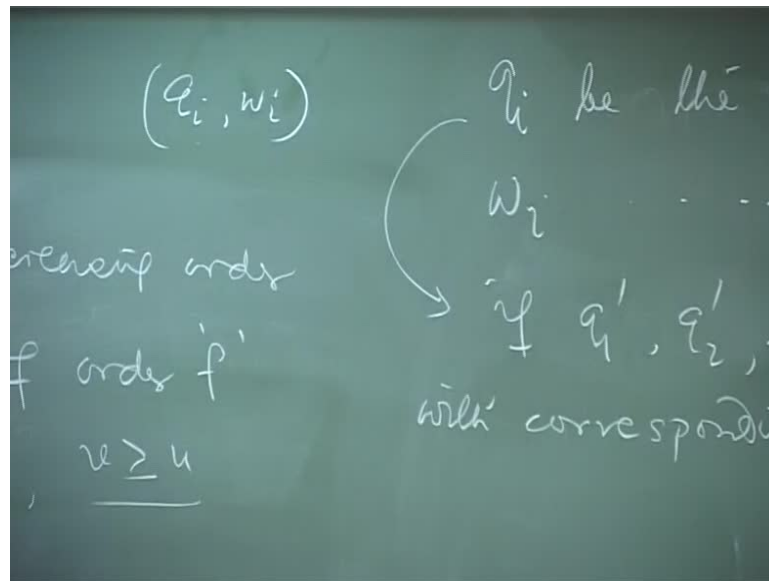 (q_i, w_i)
order
f order 'f'
, v ≥ u
q_i be the
w_i . . .
if q'_1, q'_2,
with correspondi